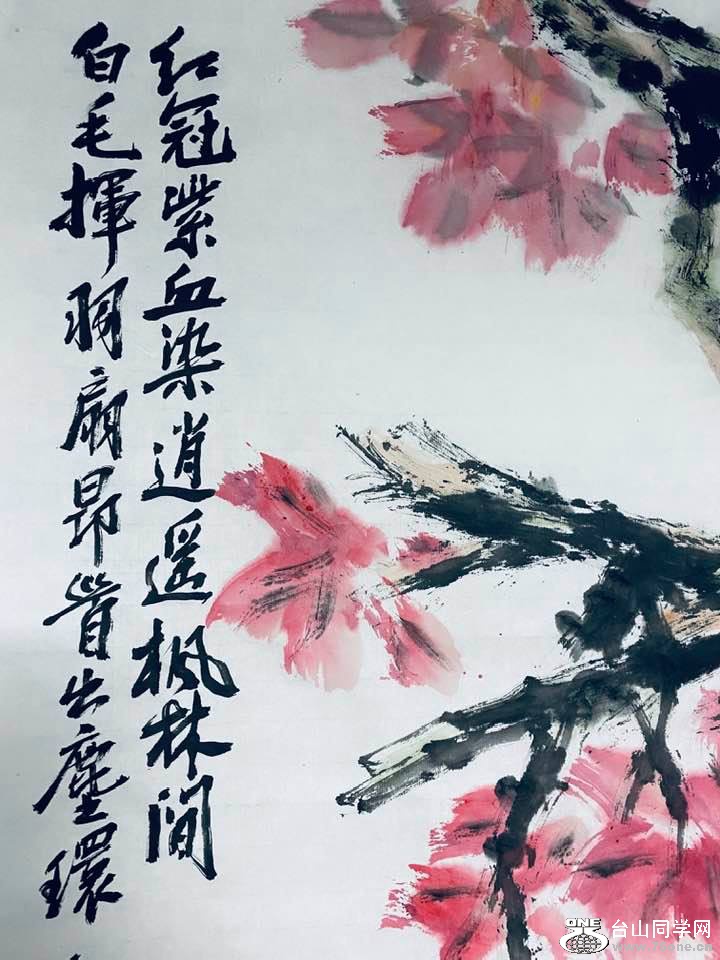 红冠紫血染逍遥枫林间
白毛揮羽扇昂首出塵環
ONE
台山同学网